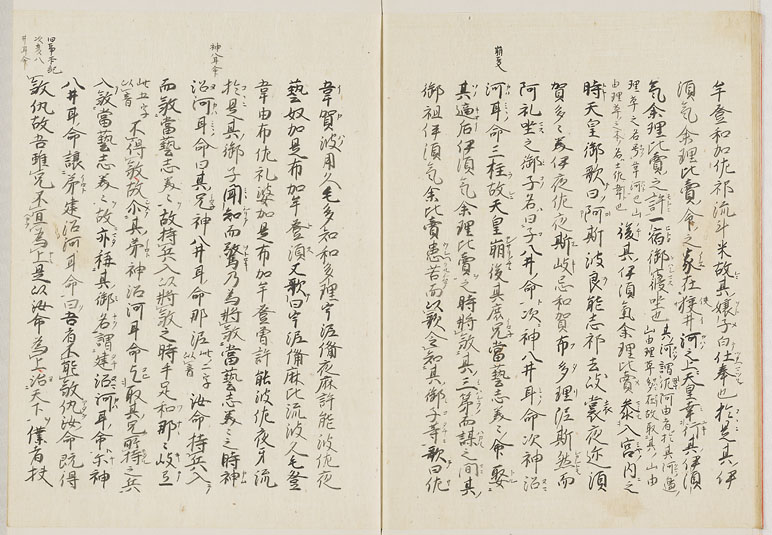 牟登和加佐祁流斗米故其孃子白仕奉也於是其伊
須氣余理比賣命之家在狹井河之上天皇幸行其伊須
氣余理比賣之許一宿御寢坐也其河謂佐韋河由者於其河邊山由理草多在故取其山由
理草之名号佐韋河也山由理草之本名云佐韋也後其伊須氣余理比賣参入宮内之
時天皇御歌曰阿斯波良能志祁去岐袁夜迩須
賀多々美伊夜佐夜斯岐弖和賀布多理泥斯然而
阿礼坐之御子名曰子八井命次神八井耳命次神沼
河耳命三柱故天皇崩後其庶兄當藝志美々命娶
其適后伊須氣余理比賣之時將殺其三弟而謀之間其
御祖伊須氣余理比賣患苦而以歌令知其御子等歌曰佐
韋賀波用久毛多知和多理宇泥備夜麻許能波佐夜
藝奴加是布加牟登須又歌曰宇泥備麻比流波久毛登
韋由布佐礼婆加是布加牟登曽許能波佐夜牙流
神八耳命
於是其御子聞知而驚乃為將殺當藝志美々之時神
沼河耳命曰其兄神八井耳命那泥此二字以音汝命持兵入
而殺當藝志美々故持兵入以將殺之時手足和那々岐弖
此五字以音不得殺故尓其弟神沼河耳命乞取其兄所持之兵
入殺當藝志美々故亦稱其御名謂建沼河耳命尓神
八井耳命讓弟建沼河耳命曰吾者不能殺仇汝命既得
旧事本紀
次彦八
井耳命
殺仇故吾雖兄不宜為上是以汝命為上治天下僕者扶